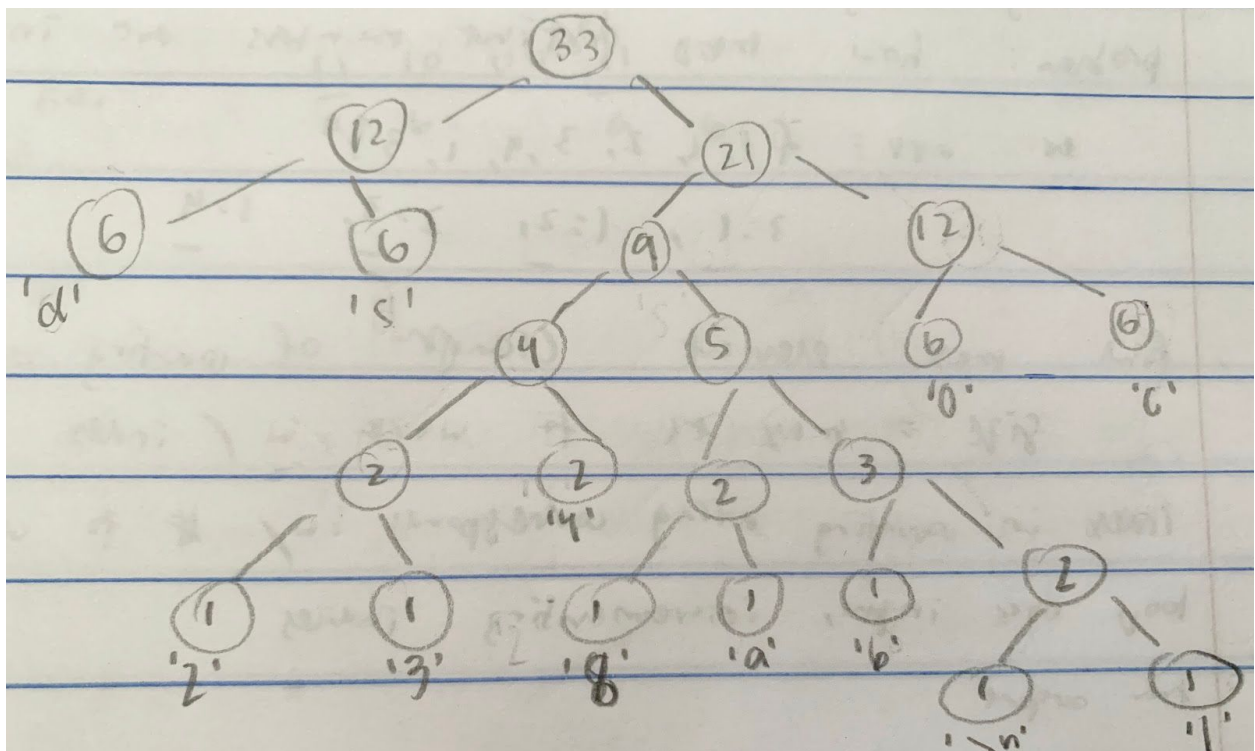 33
12 21
6 6 9 12
'd' 's'
4 5 6 6
'0' 'c'
2 2 2 3
'4'
1 1 1 1 1 2
'2' '3' '8' 'a' 'b'
1 1
'\n' '1'